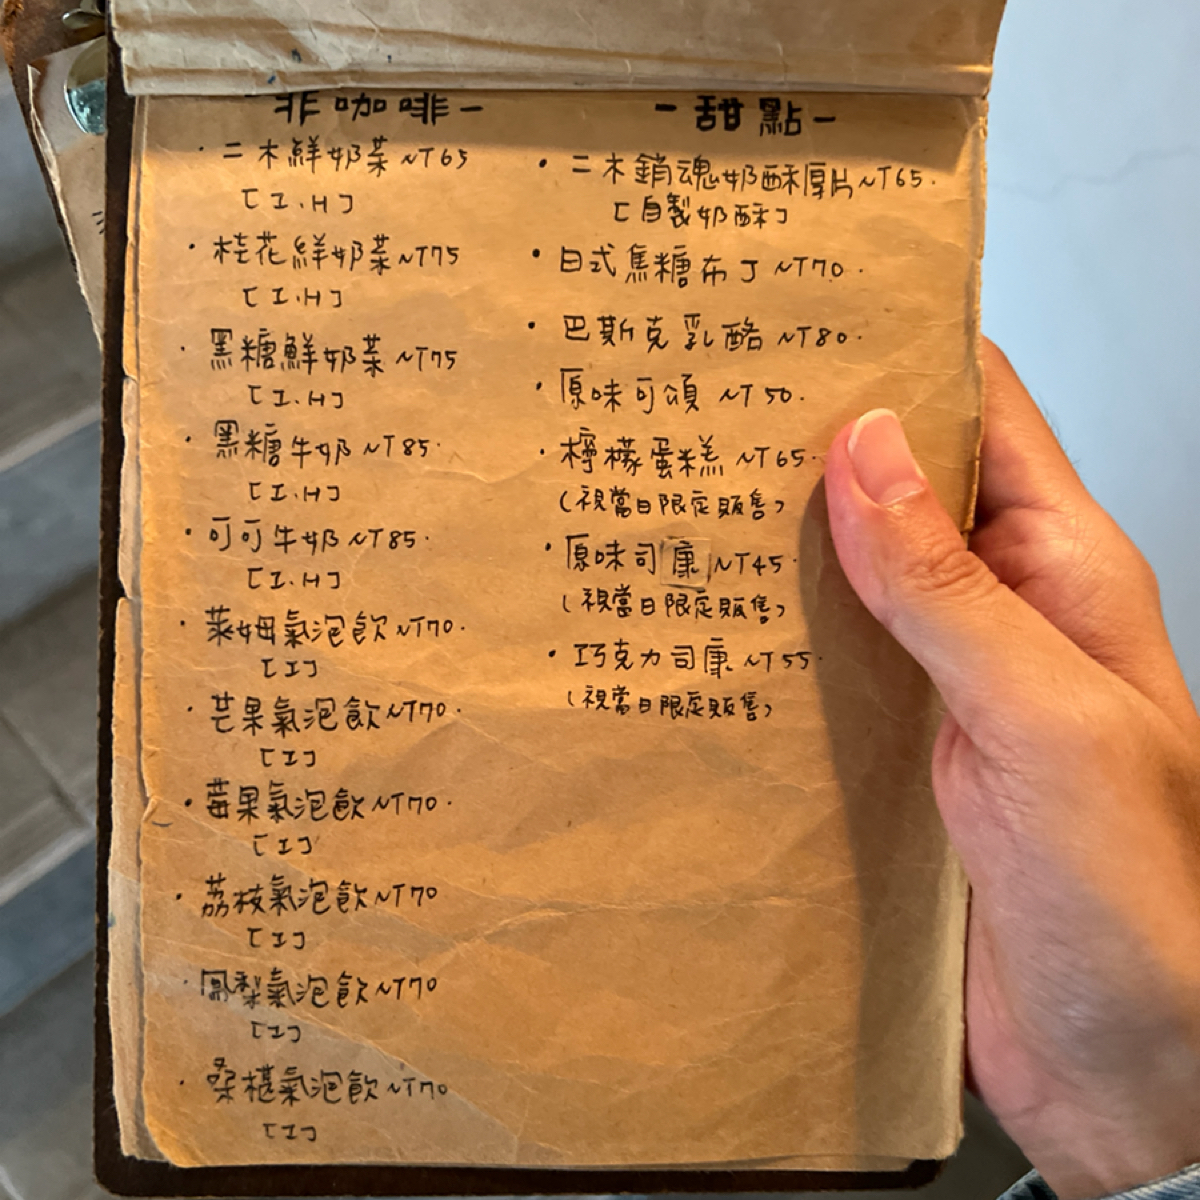 -非咖啡-
·二木鮮奶茶 NT65
【I.H】
·桂花鮮奶茶 NT75
【I.H】
·黑糖鮮奶茶 NT75
【I.H】
·黑糖牛奶 NT85.
【I.H】
·可可牛奶 NT85.
【I.H】
·萊姆氣泡飲 NT70.
【I】
·芒果氣泡飲 NT70.
【I】
·莓果氣泡飲 NT70.
【I】
·荔枝氣泡飲 NT70
【I】
·鳳梨氣泡飲 NT70
【I】
·桑椹氣泡飲 NT70
【I】
-甜點-
·二木銷魂奶酥厚片 NT65.
【自製奶酥】
·日式焦糖布丁 NT70.
·巴斯克乳酪 NT80.
·原味可頌 NT50.
·檸檬蛋糕 NT65.
(視當日限定販售)
·原味司康 NT45.
(視當日限定販售)
·巧克力司康 NT55.
(視當日限定販售)